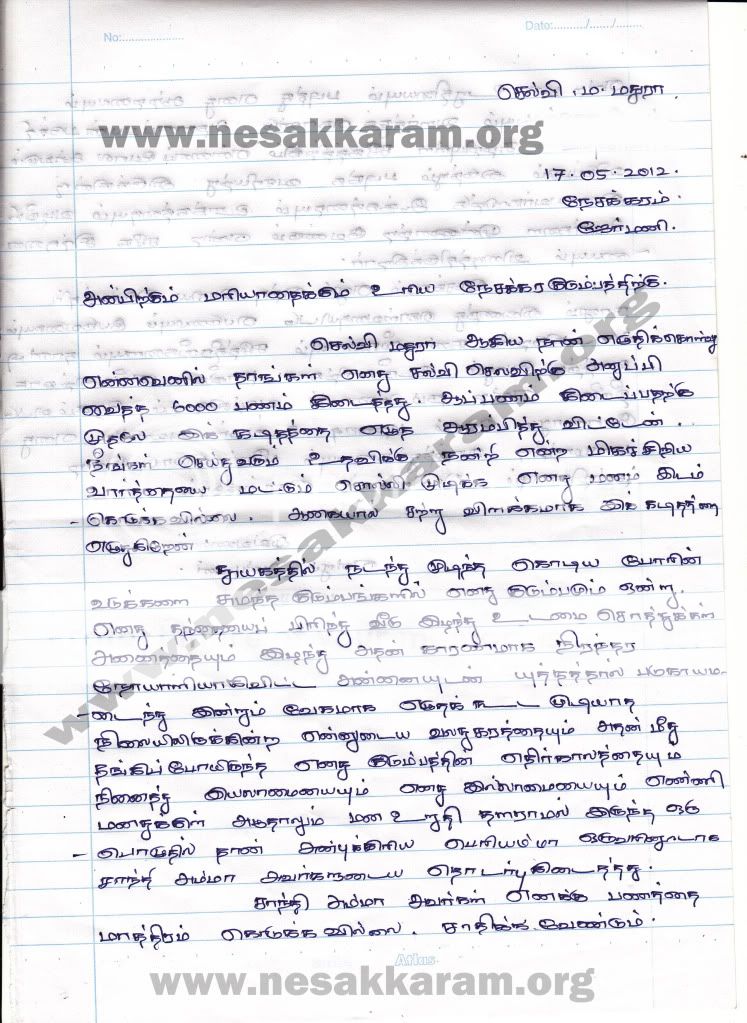 No:....................
Date:........../......./........
செல்வி .ம. மதுரா.
www.nesakkaram.org
17.05.2012.
நேசக்கரம்.
ஜேர்மனி.
அன்பிற்கும் மரியாதைக்கும் உரிய நேசக்கர குடும்பத்திற்கு.
செல்வி மதுரா ஆகிய நான் எழுதிக்கொள்வது
என்னவெனில் தாங்கள் எனது கல்வி செலவிற்கு அனுப்பி
வைத்த 6000 பணம் கிடைத்தது. ஆப்பணம் கிடைப்பதற்கு
முதலே இக் கடிதத்தை எழுத ஆரம்பித்து விட்டேன்.
நீங்கள் செய்துவரும் உதவிக்கு நன்றி என்ற மிகச்சிறிய
வார்த்தையை மட்டும் சொல்லி முடிக்க எனது மனம் இடம்
- கொடுக்கவில்லை. ஆகையால் சற்று விளக்கமாக இக் கடிதத்தை
எழுதுகிறேன்
தாயகத்தில் நடந்து முடிந்த கொடிய போரின்
வடுக்களை சுமந்த குடும்பங்களில் எனது குடும்பமும் ஒன்று.
எனது தந்தையைப் பிரிந்து வீடு இழந்து உடமை சொத்துக்கள்
அனைத்தையும் இழந்து அதன் காரணமாக நிரந்தர
நோயாளியாகிவிட்ட அன்னையுடன் யுத்தத்தால் படுகாயம-
- டைந்து இன்றும் வேகமாக எழுதக் கூட முடியாத
நிலையிலிருக்கின்ற என்னுடைய வலதுகரத்தையும் அதன் மீது
தங்கிப்போயிருந்த எனது குடும்பத்தின் எதிர்காலத்தையும்
நினைத்து இயலாமையையும் எனது இல்லாமையையும் எண்ணி
மனதுக்குள் அழுதாலும் மன உறுதி தளராமல் இருந்த ஒரு
- பொழுதில் தான் அன்புக்குரிய பெரியம்மா ஒருவரினூடாக
சாந்தி அம்மா அவர்களுடைய தொடர்பு கிடைத்தது.
சாந்தி அம்மா அவர்கள் எனக்கு பணத்தை
மாத்திரம் கொடுக்கவில்லை. சாதிக்க வேண்டும்.
Atlas
www.nesakkaram.org
www.nesakkaram.org